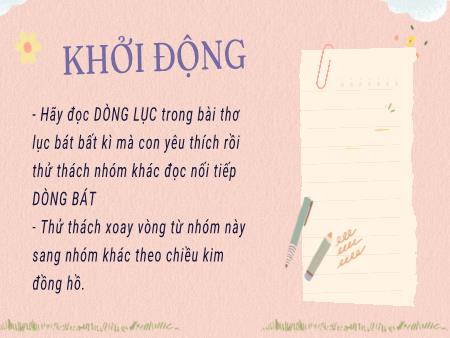 KHỞI ĐỘNG
- Hãy đọc DÒNG LỤC trong bài thơ
lục bát bất kì mà con yêu thích rồi
thử thách nhóm khác đọc nối tiếp
DÒNG BÁT
- Thử thách xoay vòng từ nhóm này
sang nhóm khác theo chiều kim
đồng hồ.